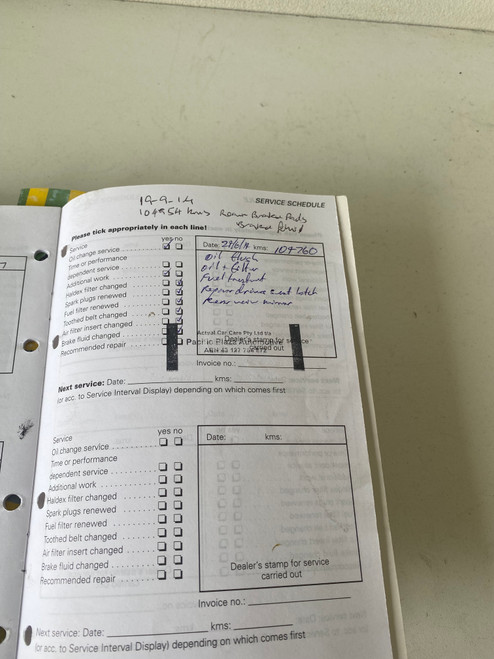 19-9-14
SERVICE SCHEDULE
104954 kms Rear Brake Pads
Brake fluid
Please tick appropriately in each line!
yes no
Service
Oil change service
Time or performance
dependent service
Additional work
Haldex filter changed
Spark plugs renewed
Fuel filter renewed
Toothed belt changed
Air filter insert changed
Brake fluid changed
Recommended repair
Date: kms: 104760
Oil flush
Oil + filter
Fuel
Repair drivers seat
rear view mirror
Actval Car Care Pty Ltd t/a
Pacific Plaza Automotive
Dealer's stamp for service
carried out
ABN
Invoice no.:
Next service: Date: kms:
(or acc. to Service Interval Display) depending on which comes first
yes no
Service
Oil change service
Time or performance
dependent service
Additional work
Haldex filter changed
Spark plugs renewed
Fuel filter renewed
Toothed belt changed
Air filter insert changed
Brake fluid changed
Recommended repair
Date: kms:
Dealer's stamp for service
carried out
Invoice no.:
Next service: Date: kms:
(or acc. to Service Interval Display) depending on which comes first